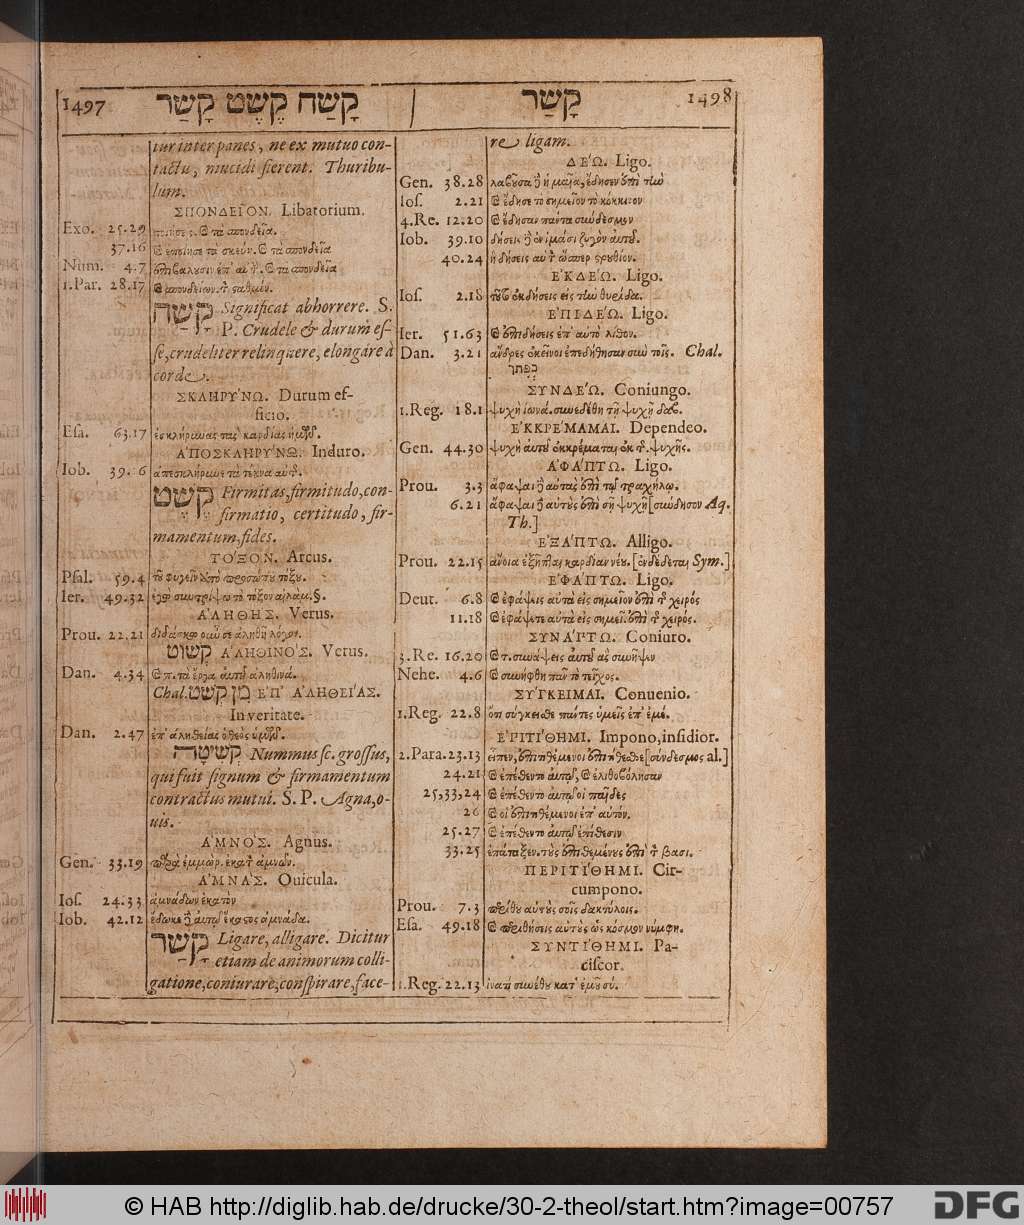 1497 קָשַׁח קֶשֶׁט קָשַׁר
tur inter panes, ne ex mutuo con-
tactu, mucidi fierent. Thuribu-
lum.
ΣΠΟΝΔΕΙ͂ΟΝ. Libatorium.
Exo. 25.29
37.16 καὶ ἐποίησε τὰ σκεύη. καὶ τὰ σπονδεῖα
Num. 4.7 καὶ τὰ σπονδεῖα
1.Par. 28.17 καὶ σπονδείων.
קָשַׁח Significat abhorrere. S.
P. Crudele & durum es-
se, crudeliter relinquere, elongare à
corde.
ΣΚΛΗΡΥ΄ΝΩ. Durum ef-
ficio.
Esa. 63.17 ἐσκλήρυνας τὰς καρδίας ἡμῶν.
ἈΠΟΣΚΛΗΡΥ΄ΝΩ. Induro.
Iob. 39.16 ἀπεσκλήρυνε τὰ τέκνα αὐτῆς.
קֶשֶׁט Firmitas, firmitudo, con-
firmatio, certitudo, fir-
mamentum, fides.
ΤΟ΄ΞΟΝ. Arcus.
Psal. 59.4 τοῦ φυγεῖν ἀπὸ προσώπου τόξου.
Ier. 49.32 ἐγὼ συντρίψω τὸ τόξον αἰλάμ. §.
ἈΛΗΘΗ΄Σ. Verus.
Prou. 22.21 διδάσκω οὖν σε ἀληθῆ λόγον.
קְשׁוֹט ἈΛΗΘΙΝΟ΄Σ. Verus.
Dan. 4.34 τὰ ἔργα αὐτοῦ ἀληθινά.
Chal. מִן קְשֹׁט ἘΠ᾿ ἈΛΗΘΕΙ΄ΑΣ.
In veritate.
Dan. 2.47 ἐπ᾿ ἀληθείας ὁ θεὸς ὑμῶν.
קְשִׂיטָה Nummus sc. grossus,
qui fuit signum & firmamentum
contractus mutui. S. P. Agna, o-
uis.
ἈΜΝΟ΄Σ. Agnus.
Gen. 33.19 παρὰ ἐμμώρ. ἑκατὸν ἀμνῶν.
ἈΜΝΑ΄Σ. Ouicula.
Ios. 24.33 ἀμνάδων ἑκατὸν
Iob. 42.12 ἔδωκε δὲ αὐτῷ ἕκαστος ἀμνάδα.
קָשַׁר Ligare, alligare. Dicitur
etiam de animorum colli-
gatione, coniurare, conspirare, face-
קָשַׁר 1498
re ligam.
ΔΕ΄Ω. Ligo.
Gen. 38.28 λαβοῦσα δὲ ἡ μαῖα, ἔδησεν ἐπὶ τὴν
Ios. 2.21 καὶ ἔδησε τὸ σημεῖον τὸ κόκκινον
4.Re. 12.20 καὶ ἔδησαν πάντα σύνδεσμον
Iob. 39.10 δήσεις δὲ ἐν ἱμᾶσι ζυγὸν αὐτοῦ.
40.24 ἢ δήσεις αὐτὸν ὥσπερ στρουθίον.
ἘΚΔΕ΄Ω. Ligo.
Ios. 2.18 ἐκδήσεις εἰς τὴν θυρίδα.
ἘΠΙΔΕ΄Ω. Ligo.
Ier. 51.63 καὶ ἐπιδήσεις ἐπ᾿ αὐτὸ λίθον.
Dan. 3.21 ἄνδρες ἐκεῖνοι ἐπεδήθησαν σὺν τοῖς. Chal.
כְּפַתוּ
ΣΥΝΔΕ΄Ω. Coniungo.
1.Reg. 18.1 ψυχὴ ἰωνά. συνεδέθη τῇ ψυχῇ δαβ.
ἘΚΚΡΕ΄ΜΑΜΑΙ. Dependeo.
Gen. 44.30 ψυχὴ αὐτοῦ ἐκκρέμαται ἐκ τῆς ψυχῆς.
ἈΦΑ΄ΠΤΩ. Ligo.
Prou. 3.3 ἄφαψαι δὲ αὐτὰς ἐπὶ τῷ τραχήλῳ.
6.21 ἄφαψαι δὲ αὐτοὺς ἐπὶ σῇ ψυχῇ [σύνδησον Aq.
Th.]
ἘΞΑ΄ΠΤΩ. Alligo.
Prou. 22.15 ἄνοια ἐξῆπται καρδίαν νέου. [ἐνδέδεται Sym.]
ἘΦΑ΄ΠΤΩ. Ligo.
Deut. 6.8 καὶ ἐφάψεις αὐτὰ εἰς σημεῖον ἐπὶ τῆς χειρός
11.18 καὶ ἐφάψετε αὐτὰ εἰς σημεῖ. ἐπὶ τῆς χειρός.
ΣΥΝΑ΄ΠΤΩ. Coniuro.
3.Re. 16.20 συνάψεις αὐτοῦ ἃς συνῆψεν
Nehe. 4.6 καὶ συνήφθη πᾶν τὸ τεῖχος.
ΣΥ΄ΓΚΕΙΜΑΙ. Conuenio.
1.Reg. 22.8 ὅτι σύγκεισθε πάντες ὑμεῖς ἐπ᾿ ἐμέ.
ἘΡΙΤΙ΄ΘΗΜΙ. Impono, insidior.
2.Para. 23.13 εἶπεν, ἐπιτιθέμενοι ἐπιτίθεσθε [σύνδεσμος al.]
24.21 καὶ ἐπέθεντο αὐτῷ, καὶ ἐλιθοβόλησαν
25,33,24 καὶ ἐπέθεντο αὐτῷ οἱ παῖδες
26 καὶ οἱ ἐπιτιθέμενοι ἐπ᾿ αὐτόν.
25.27 καὶ ἐπέθεντο αὐτῷ ἐπίθεσιν
33.25 ἐπάταξεν. τοὺς ἐπιθεμένους ἐπὶ τὸν βασι.
ΠΕΡΙΤΙ΄ΘΗΜΙ. Cir-
cumpono.
Prou. 7.3 περίθου αὐτοὺς σοῖς δακτύλοις.
Esa. 49.18 καὶ περιθήσεις αὐτοὺς ὡς κόσμον νύμφη.
ΣΥΝΤΙ΄ΘΗΜΙ. Pa-
ciscor.
1.Reg. 22.13 ἱνατί συνέθου κατ᾿ ἐμοῦ σύ.
© HAB http://diglib.hab.de/drucke/30-2-theol/start.htm?image=00757
DFG